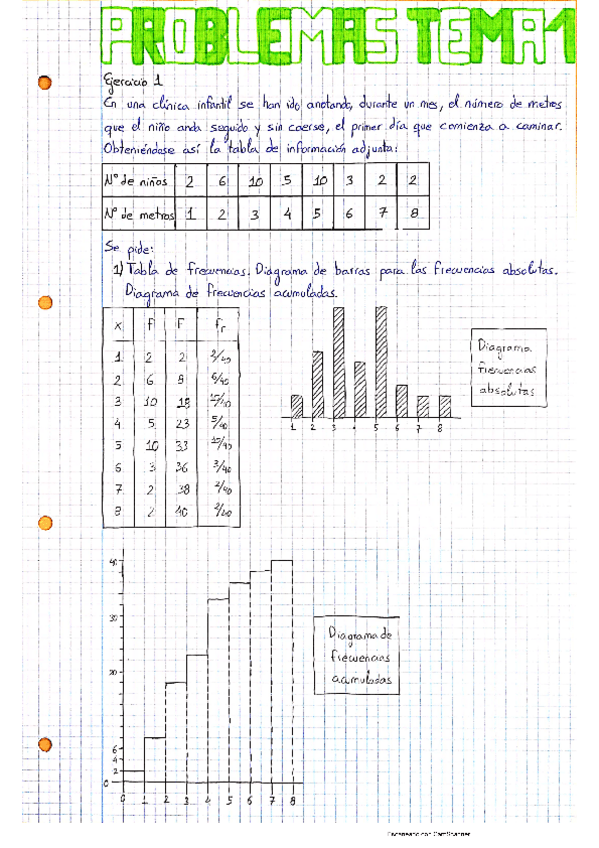 PROBLEMAS TEMA 1
Ejercicio 1
En una clínica infantil se han ido anotando, durante un mes, el número de metros
que el niño anda seguido y sin caerse, el primer día que comienza a caminar.
Obteniéndose así la tabla de información adjunta:
Nº de niños 2 6 10 5 10 3 2 2
Nº de metros 1 2 3 4 5 6 7 8
Se pide:
1) Tabla de frecuencias. Diagrama de barras para las frecuencias absolutas.
Diagrama de frecuencias acumuladas.
x f F fr
1 2 2 2/40
2 6 8 6/40
3 10 18 10/40
4 5 23 5/40
5 10 33 10/40
6 3 36 3/40
7 2 38 2/40
8 2 40 2/40
1 2 3 4 5 6 7 8
Diagrama
frecuencias
absolutas
40
30
20
6
4
2
0
0 1 2 3 4 5 6 7 8
Diagrama de
frecuencias
acumuladas
Escaneado con CamScanner